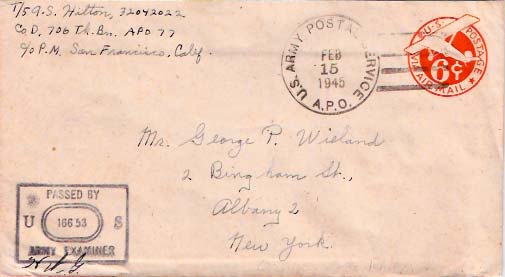 T/5 G.S. Hilton, 32042022
Co D, 706 Tk. Bn. APO 77
c/o P.M. San Francisco, Calif.
U.S. ARMY POSTAL SERVICE
FEB
15
1945
A.P.O.
U.S. POSTAGE
6¢
VIA AIR MAIL
Mr. George P. Wieland
2 Bingham St.,
Albany 2
New York.
PASSED BY
U 16653 S
ARMY EXAMINER